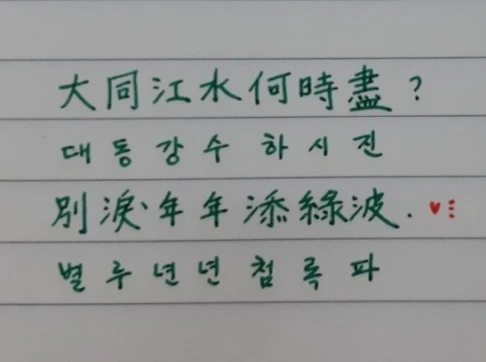 大同江水何時盡?
대동강수하시진
別淚年年添綠波.
별루년년첨록파